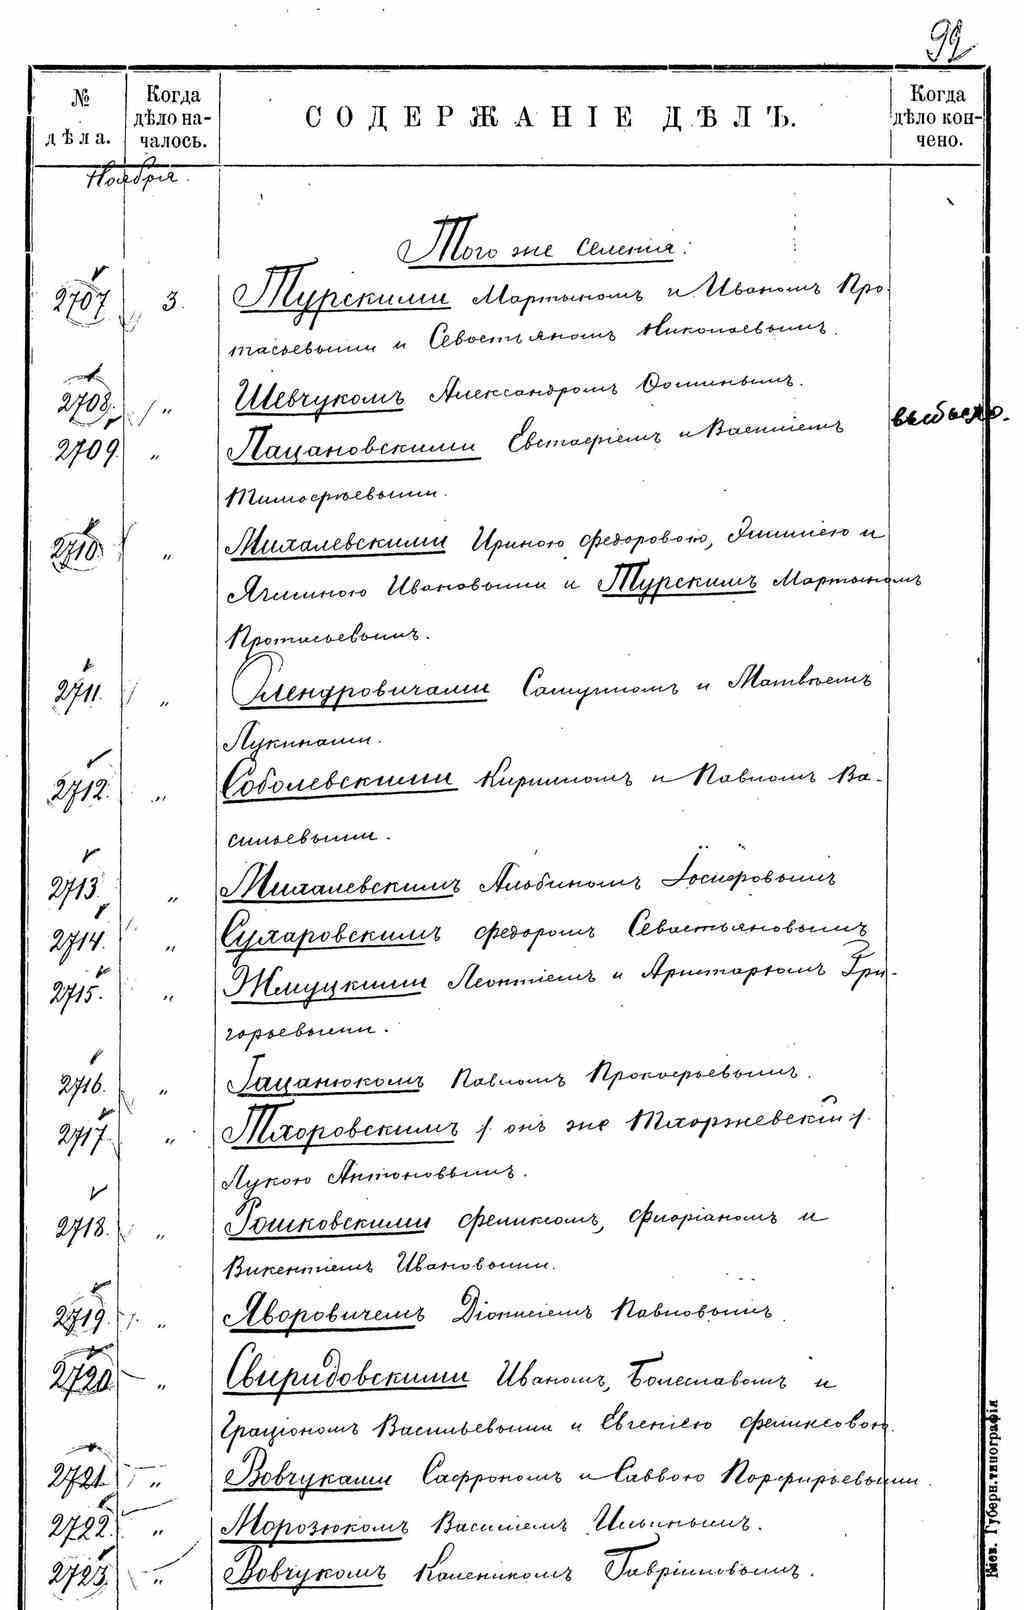 92
№ дѣла.
Когда дѣло началось.
СОДЕРЖАНІЕ ДѢЛЪ.
Когда дѣло кончено.
Ноября.
Того же селенія:
2707 3. Турскими Мартыномъ и Иваномъ Про-
тасьевыми и Севостьяномъ Николаевымъ.
2708. " Шевчукомъ Александромъ Фоминымъ.
выбыло.
2709. " Пацановскими Евстафіемъ и Василіемъ
Тимофѣевыми.
2710. " Михалевскими Ириною Федоровою, Эмиліею и
Ивановыми и Турскимъ Мартыномъ
Протасьевымъ.
2711. " Олендровичами и Матвѣемъ
Лукинами.
2712. " Соболевскими Кирилломъ и Павломъ Ва-
сильевыми.
2713 " Михалевскимъ Альбиномъ Іосифовымъ
2714. " Сухаровскимъ Федоромъ Севастьяновымъ
2715. " Жмуцкими Леонтіемъ и Аристархомъ Гри-
горьевыми.
2716. " Гацанюкомъ Павломъ Прокофьевымъ.
2717 " Тхоровскимъ /. онъ же Тхоржевскій /.
Лукою Антоновымъ.
2718. " Рошковскими Феликсомъ, Флоріаномъ и
Викентіемъ Ивановыми.
2719. " Яворовичемъ Діонисіемъ Павловымъ
2720 " Свиридовскими Иваномъ, Болеславомъ и
Граціономъ Васильевыми и Евгеніею Феликсовою.
2721. " Вовчуками Сафрономъ и Саввою Порфирьевыми.
2722. " Морозюкомъ Василіемъ Ильинымъ.
2723. " Вовчукомъ Калеником Гавріиловымъ.
Кіев. Губерн. типографія